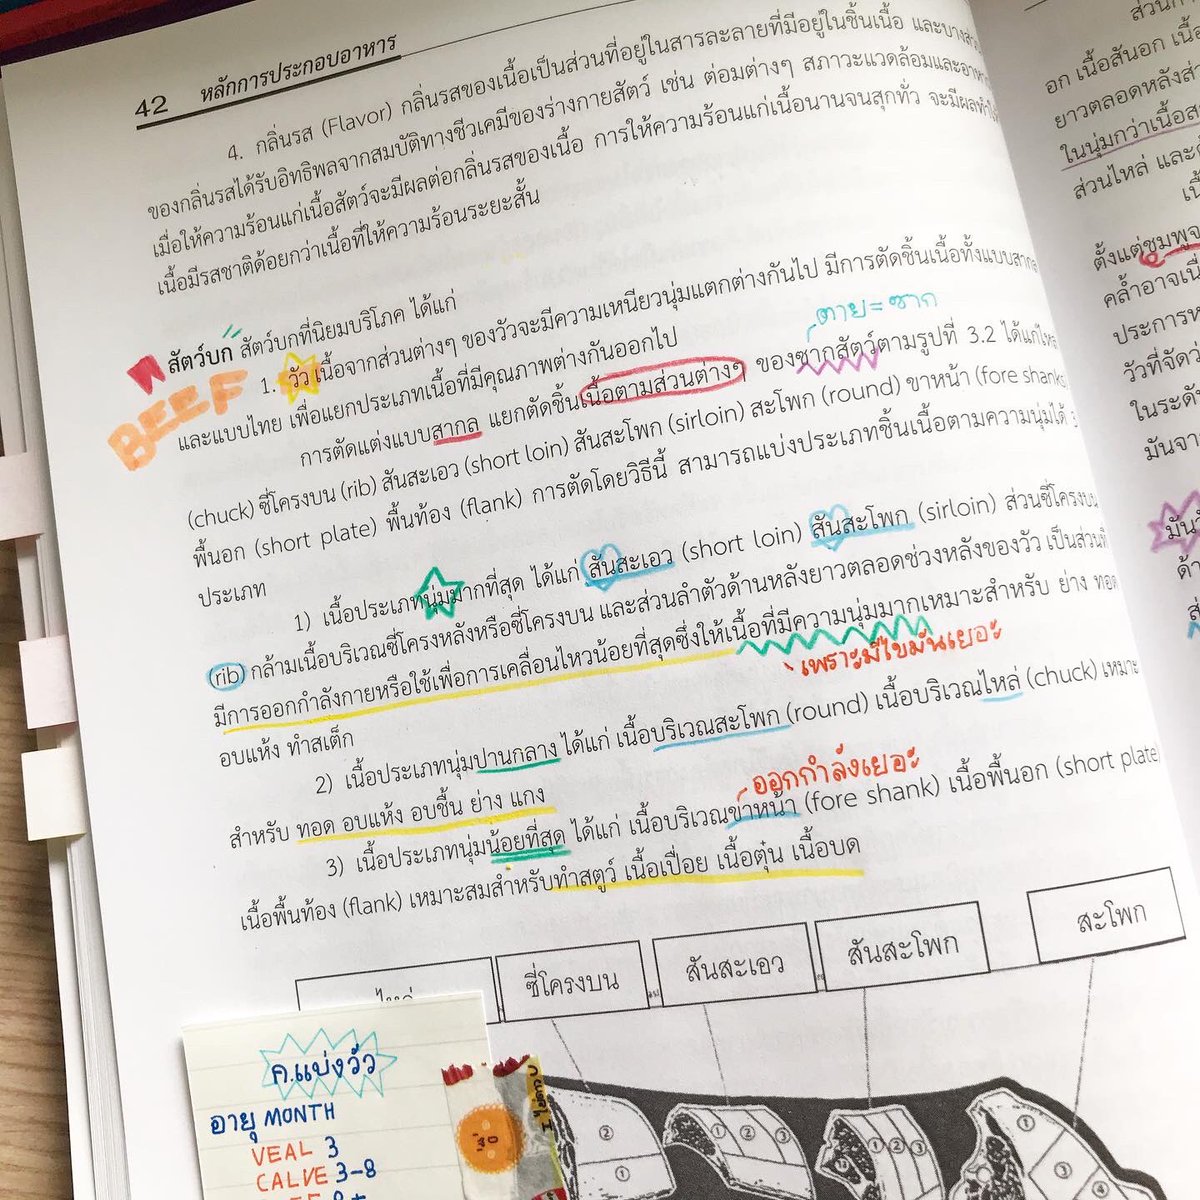 42 หลักการประกอบอาหาร
4. กลิ่นรส (Flavor) กลิ่นรสของเนื้อเป็นส่วนที่อยู่ในสารละลายที่มีอยู่ในชิ้นเนื้อ และบาง
ของกลิ่นรสได้รับอิทธิพลจากสมบัติทางชีวเคมีของร่างกายสัตว์ เช่น ต่อมต่างๆ สภาวะแวดล้อมและ
เมื่อให้ความร้อนแก่เนื้อสัตว์จะมีผลต่อกลิ่นรสของเนื้อ การให้ความร้อนแก่เนื้อนานจนสุกทั่ว จะมีผลทำ
เนื้อมีรสชาติด้อยกว่าเนื้อที่ให้ความร้อนระยะสั้น
สัตว์บก สัตว์บกที่นิยมบริโภค ได้แก่
ตาย = ซาก
BEEF
1. วัว เนื้อจากส่วนต่างๆ ของวัวจะมีความเหนียวนุ่มแตกต่างกันไป มีการตัดชิ้นเนื้อทั้งแบบสากล
และแบบไทย เพื่อแยกประเภทเนื้อที่มีคุณภาพต่างกันออกไป
การตัดแต่งแบบสากล แยกตัดชิ้นเนื้อตามส่วนต่างๆ ของซากสัตว์ตามรูปที่ 3.2 ได้แก่
(chuck) ซี่โครงบน (rib) สันสะเอว (short loin) สันสะโพก (sirloin) สะโพก (round) ขาหน้า (fore shanks)
พื้นอก (short plate) พื้นท้อง (flank) การตัดโดยวิธีนี้ สามารถแบ่งประเภทชิ้นเนื้อตามความนุ่มได้ 3
ประเภท
1) เนื้อประเภทนุ่มมากที่สุด ได้แก่ สันสะเอว (short loin) สันสะโพก (sirloin) ส่วนซี่โครงบน
(rib) กล้ามเนื้อบริเวณซี่โครงหลังหรือซี่โครงบน และส่วนลำตัวด้านหลังยาวตลอดช่วงหลังของวัว เป็นส่วนที่
มีการออกกำลังกายหรือใช้เพื่อการเคลื่อนไหวน้อยที่สุดซึ่งให้เนื้อที่มีความนุ่มมากเหมาะสำหรับ ย่าง ทอด
เพราะมีไขมันเยอะ
อบแห้ง ทำสเต็ก
2) เนื้อประเภทนุ่มปานกลาง ได้แก่ เนื้อบริเวณสะโพก (round) เนื้อบริเวณไหล่ (chuck) เหมาะ
สำหรับ ทอด อบแห้ง อบชื้น ย่าง แกง
ออกกำลังเยอะ
3) เนื้อประเภทนุ่มน้อยที่สุด ได้แก่ เนื้อบริเวณขาหน้า (fore shank) เนื้อพื้นอก (short plate)
เนื้อพื้นท้อง (flank) เหมาะสมสำหรับทำสตูว์ เนื้อเปื่อย เนื้อตุ๋น เนื้อบด
ซี่โครงบน สันสะเอว สันสะโพก สะโพก
ค.แบ่งวัว
อายุ MONTH
VEAL 3
CALVE 3-8
② ① ① ② ③ ① ② ③ ① ② ③ ④
ส่วน
อก เนื้อสันนอก
ยาวตลอดหลัง
ในนุ่มกว่าเนื้อ
ส่วนไหล่ และ
ตั้งแต่ชมพู
คล้ำอาจ
ประการ
วัวที่จัด
ในระดับ
มันจาก